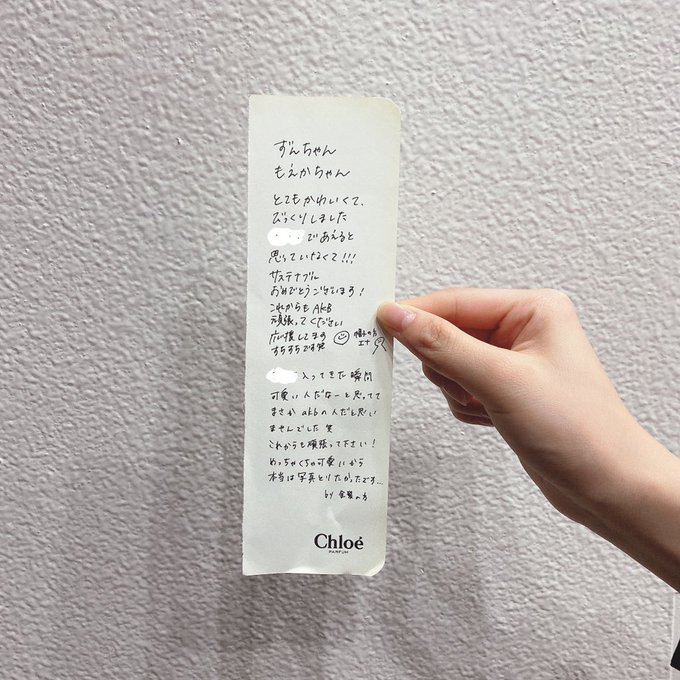 ずんちゃん
もえかちゃん
とてもかわいくて、
びっくりしました
であえると
思っていなくて!!!
サステナブル
おめでとうございます!
これからもAKB
頑張ってください
応援してます
すちすちです笑
帽子の方
入ってきた瞬間
可愛い人だなーと思ってて
まさかakbの人だと思い
ませんでした笑
これからも頑張って下さい!
めっちゃくちゃ可愛いから
本当は写真とりたかったです…
by 金髪の方
Chloé
PARFUM